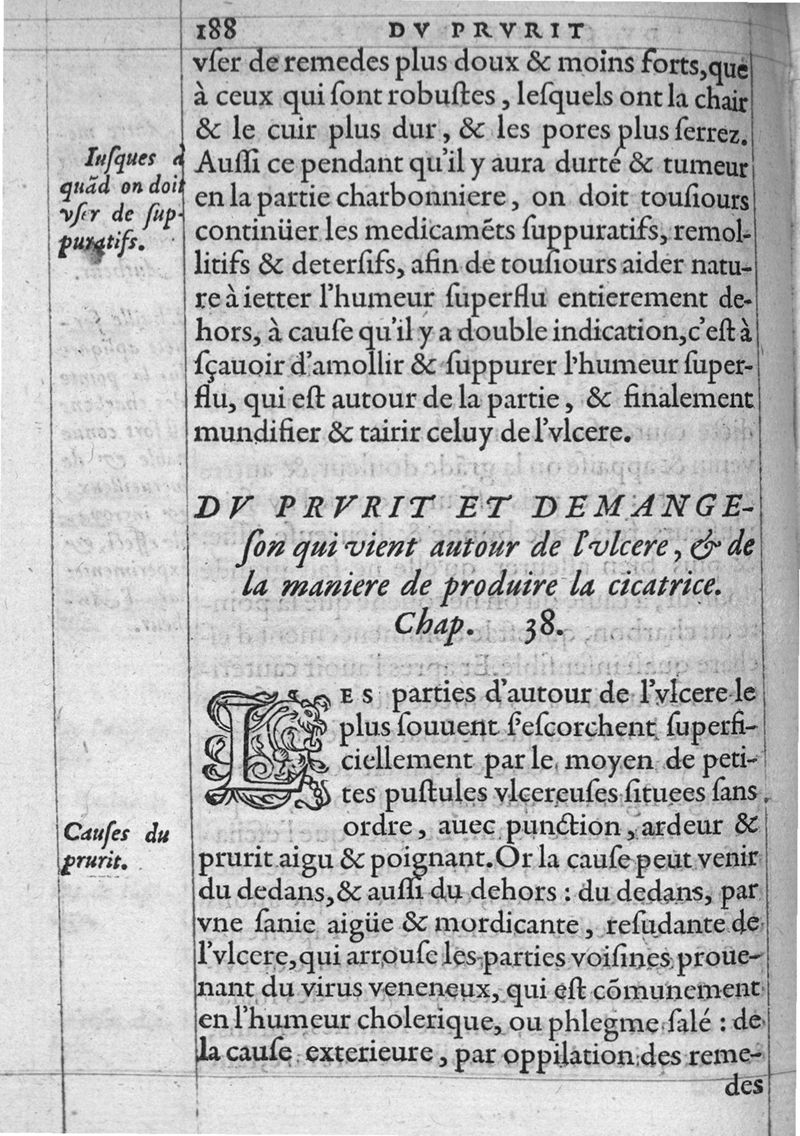 188 DV PRVRIT
vſer de remedes plus doux & moins forts, que
à ceux qui ſont robuſtes, leſquels ont la chair
& le cuir plus dur, & les pores plus ſerrez.
Iuſques à
quãd on doit
vſer de ſup-
puratifs.
Auſſi ce pendant qu'il y aura durté & tumeur
en la partie charbonniere, on doit touſiours
continüer les medicamẽts ſuppuratifs, remol-
litifs & deterſifs, afin de touſiours aider natu-
re à ietter l'humeur ſuperflu entierement de-
hors, à cauſe qu'il y a double indication, c'eſt à
ſçauoir d'amollir & ſuppurer l'humeur ſuper-
flu, qui eſt autour de la partie, & finalement
mundifier & tairir celuy de l'vlcere.
DV PRVRIT ET DEMANGE-
ſon qui vient autour de l'vlcere, & de
la maniere de produire la cicatrice.
Chap. 38.
LES parties d'autour de l'vlcere le
plus ſouuent ſ'eſcorchent ſuperfi-
ciellement par le moyen de peti-
tes puſtules vlcereuſes ſituees ſans
ordre, auec punction, ardeur &
Cauſes du
prurit.
prurit aigu & poignant. Or la cauſe peut venir
du dedans, & auſſi du dehors : du dedans, par
vne ſanie aigüe & mordicante, reſudante de
l'vlcere, qui arrouſe les parties voiſines proue-
nant du virus veneneux, qui eſt cõmunement
en l'humeur cholerique, ou phlegme ſalé : de
la cauſe exterieure, par oppilation des reme-
des